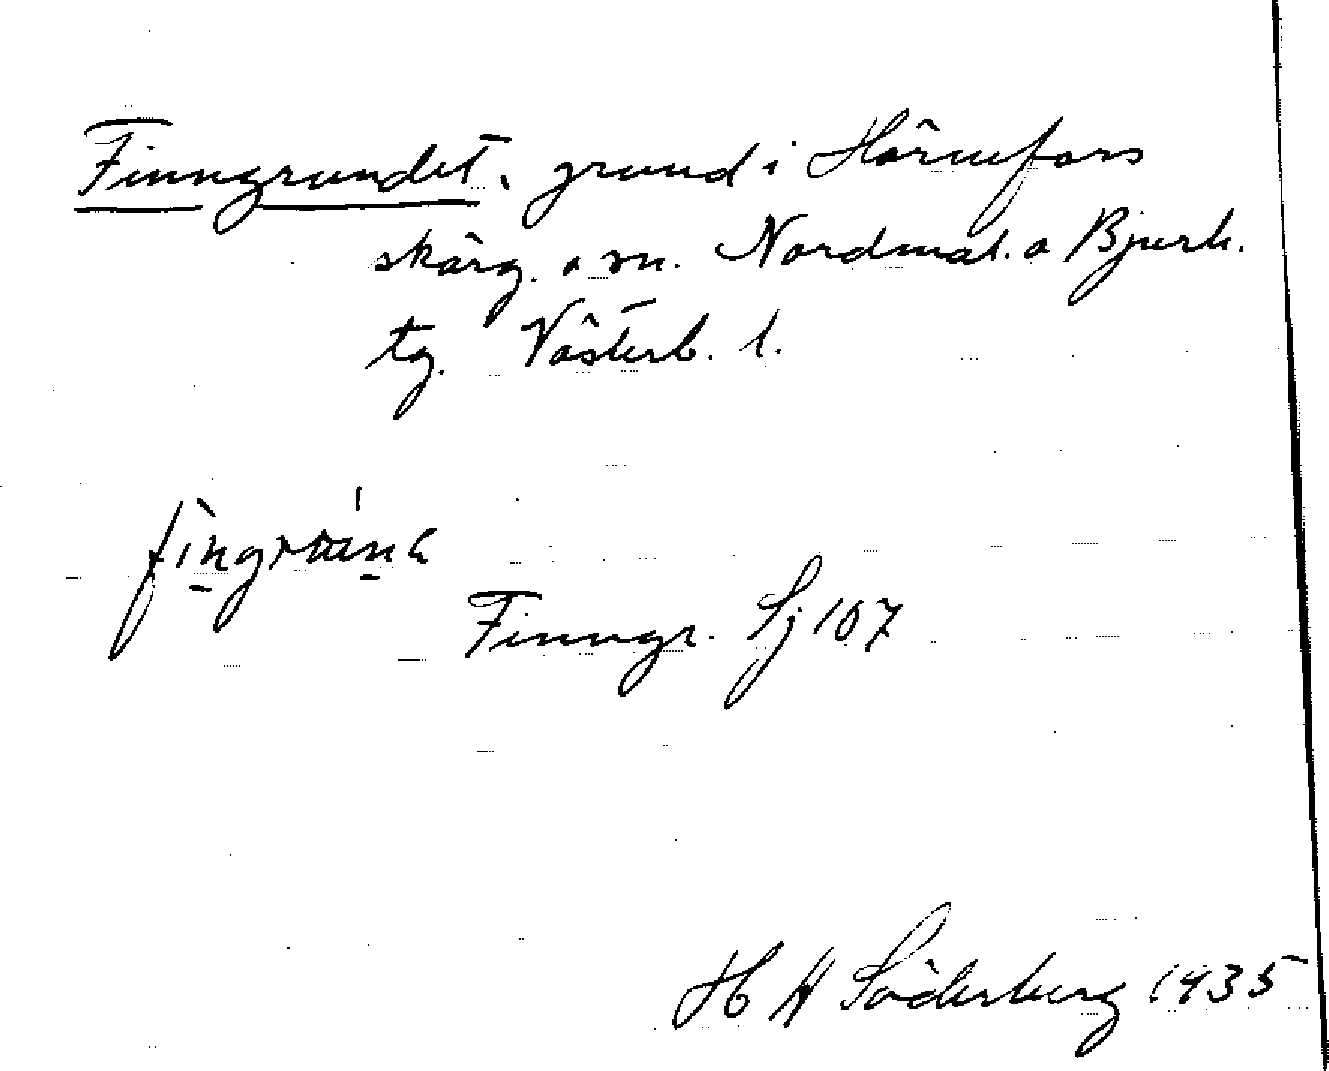 Finngrundet, grund i Hörnefors
skärg. o sn. Nordmal. o Bjurh.
tg. Västerb. l.
Finngr. Sj 107
H A Söderberg 1935